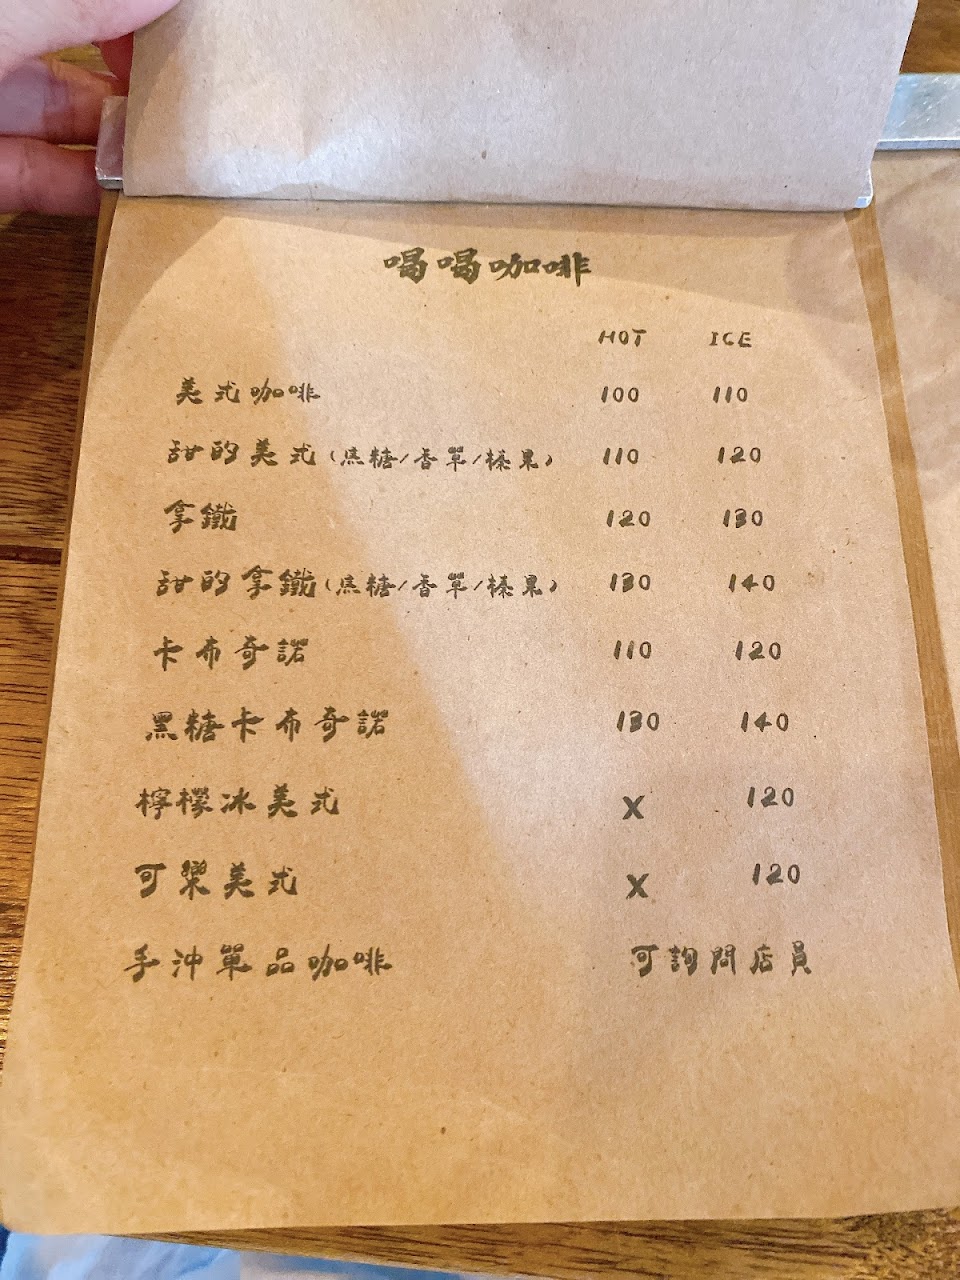 喝喝咖啡
HOT ICE
美式咖啡 100 110
甜的美式(焦糖/香草/榛果) 110 120
拿鐵 120 130
甜的拿鐵(焦糖/香草/榛果) 130 140
卡布奇諾 110 120
黑糖卡布奇諾 130 140
檸檬冰美式 X 120
可樂美式 X 120
手沖單品咖啡 可詢問店員